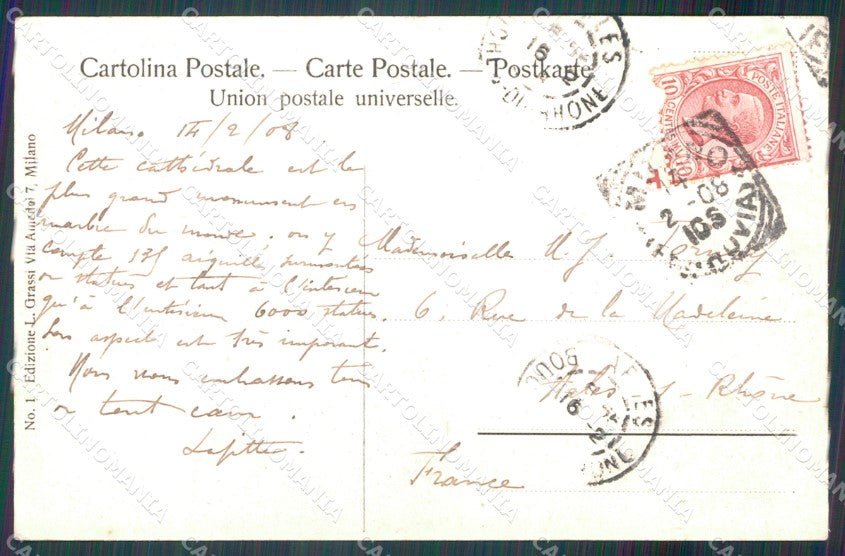 Cartolina Postale. — Carte Postale. — Postkarte
Union postale universelle.
Milano 14/2/08
Cette cathédrale est le
plus grand monument en
marbre du monde, on y
compte 135 aiguilles surmontées
de statues et tant à l'intérieur
qu'à l'extérieur 6000 statues.
Son aspect est très imposant.
Nous vous embrassons tous
de tout cœur.
Mademoiselle M. J.
6, Rue de la Madeleine
Arles s/-Rhône
France
No. 1 Edizione L. Grassi Via Amedei 7, Milano
POSTE ITALIANE
10 CENTESIMI 10
MILANO
14
2 - 08
10S
ARLES
BOUCHES-DU-RHONE
16
ARLES
BOUC
16
CARTOLINOMANIA